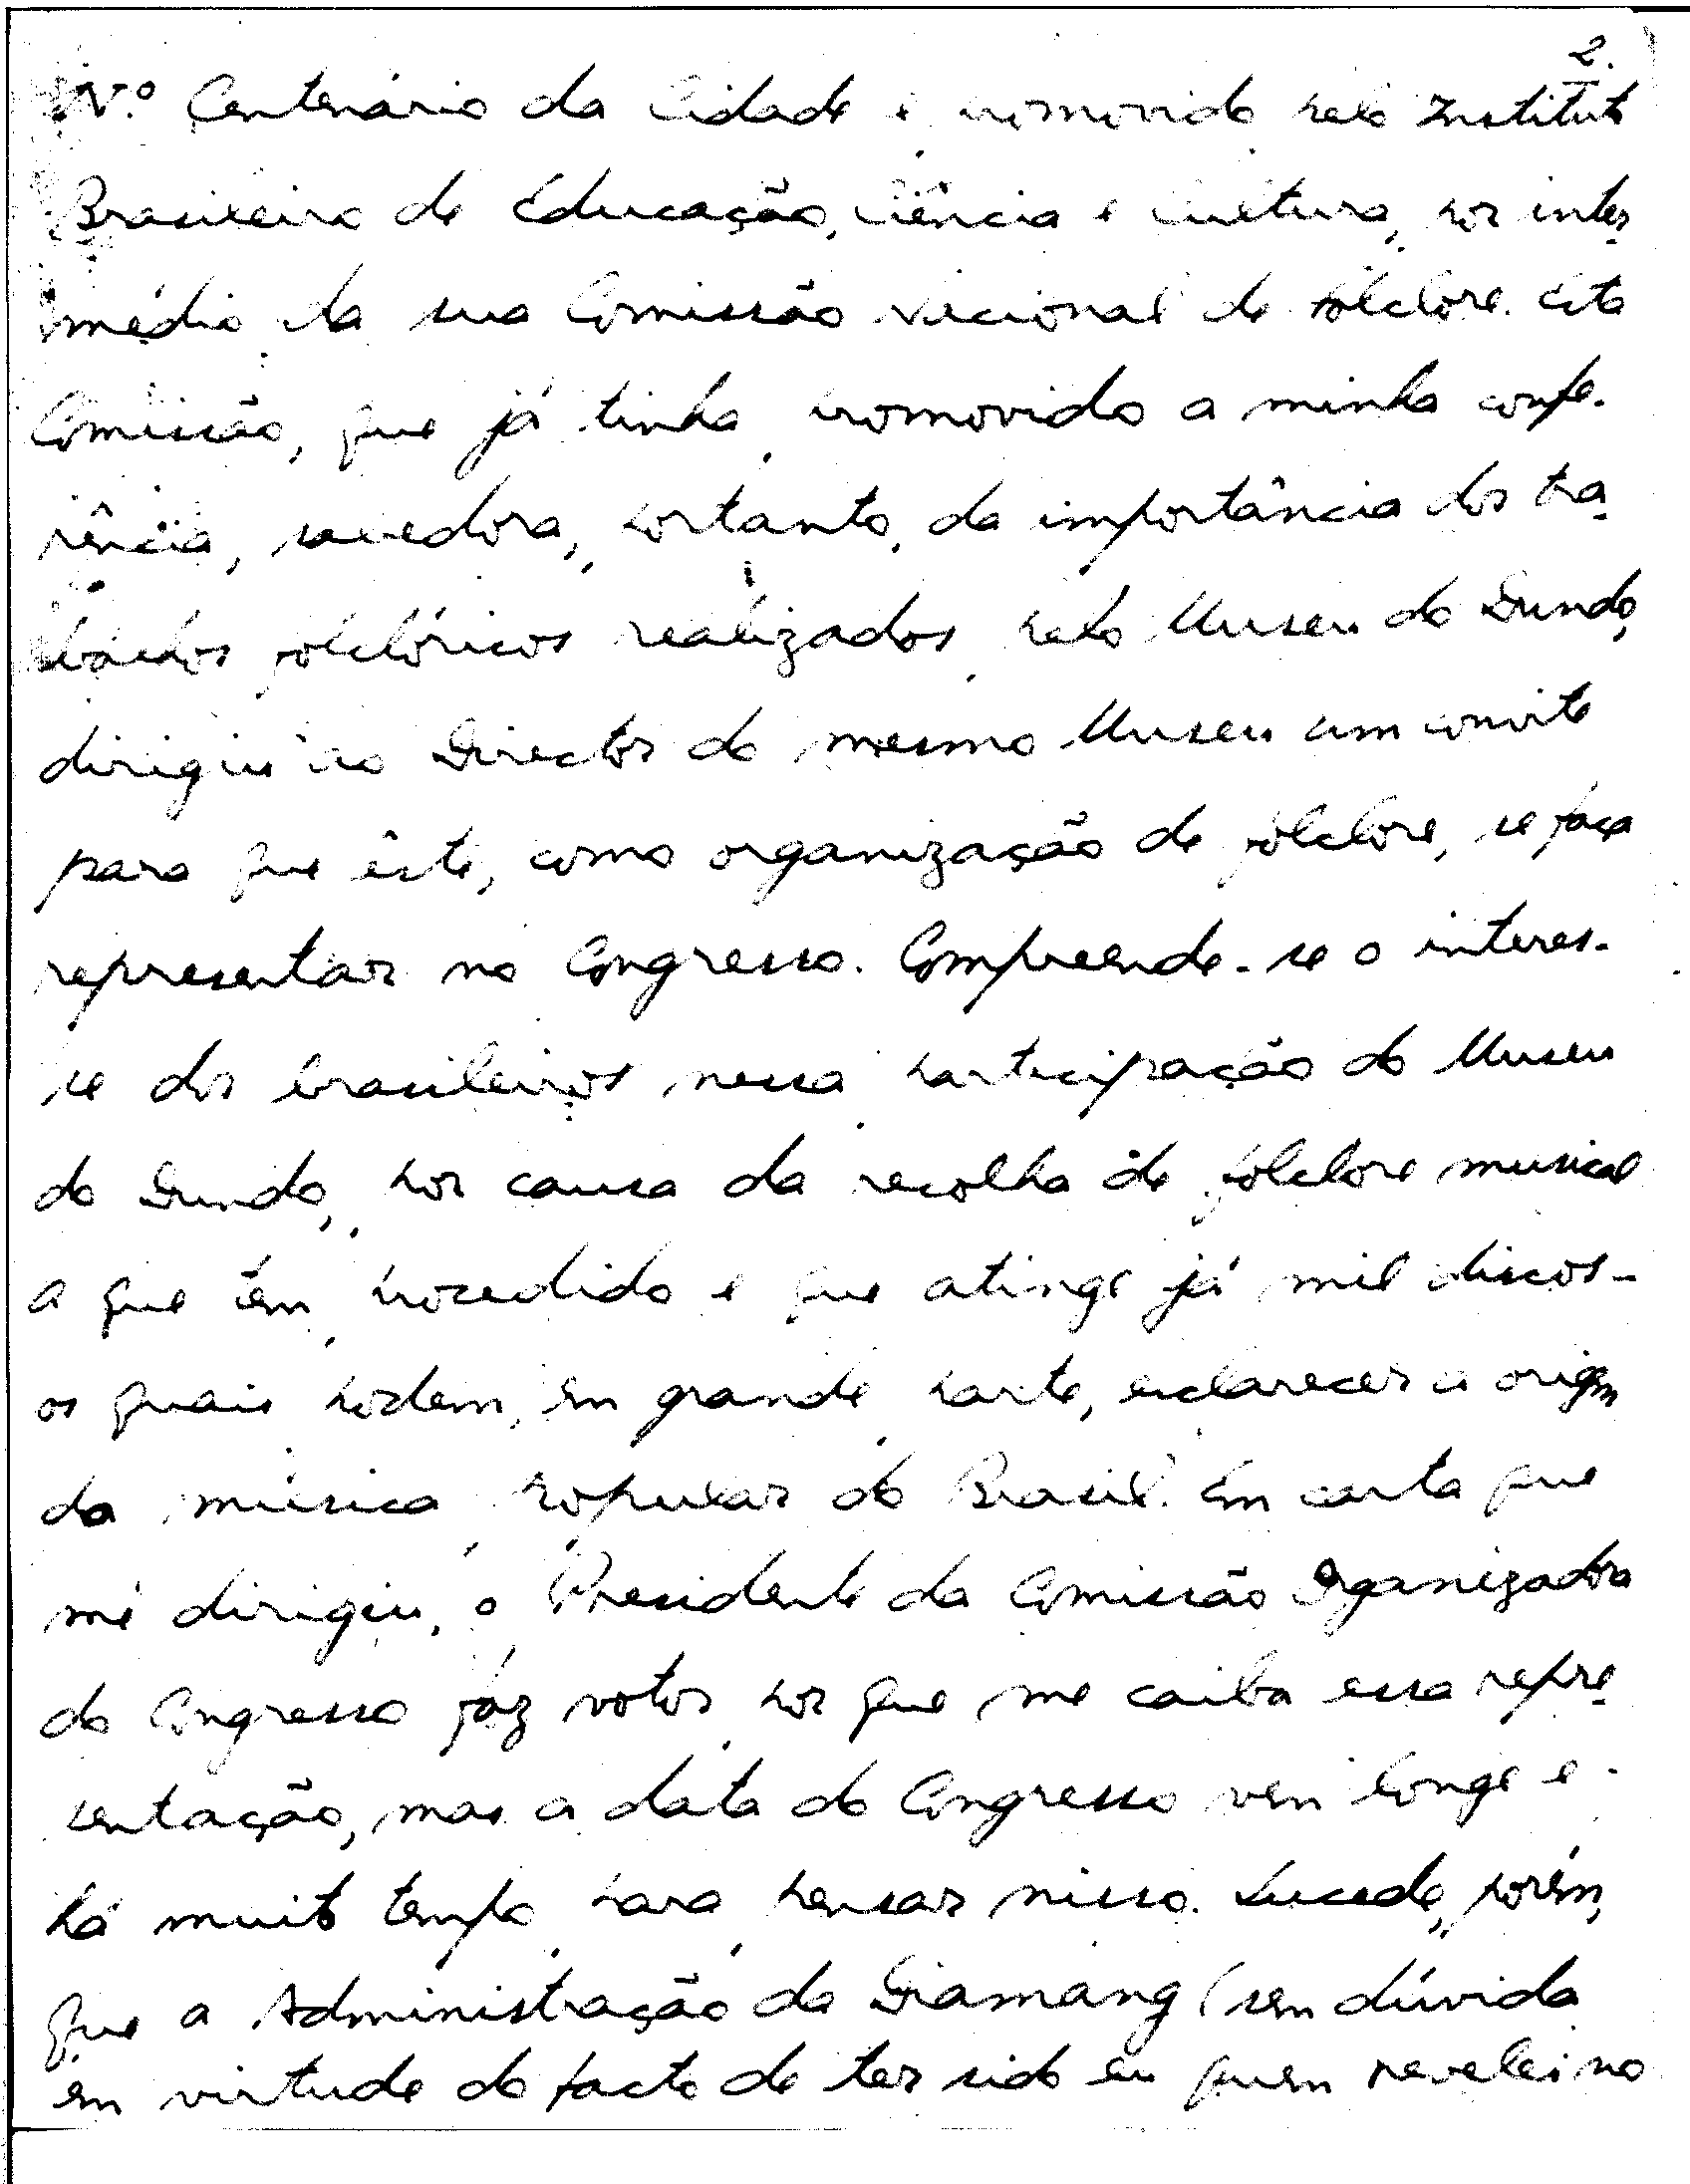 2.
IV.º Centenário da Cidade e promovido pelo Instituto
Brasileiro de Educação, Ciência e Cultura, por inter-
médio da sua Comissão Nacional de Folclore. Esta
Comissão, que já tinha promovido a minha confe-
rência, sabedora, portanto, da importância dos tra-
balhos folclóricos realizados pelo Museu do Dundo,
dirigiu ao Director do mesmo Museu um convite
para que êste, como organização de folclore, se faça
representar no Congresso. Compreende-se o interes-
se dos brasileiros nessa participação do Museu
do Dundo, por causa da recolha de folclore musical
a que tem procedido e que atinge já mil discos -
os quais podem, em grande parte, esclarecer a origem
da música popular do Brasil. Em carta que
me dirigiu, o Presidente da Comissão Organizadora
do Congresso faz votos por que me caiba essa repre-
sentação, mas a data do Congresso vem longe e
há muito tempo para pensar nisso. Sucede, porém,
que a Administração da Diamang (sem dúvida
em virtude do facto de ter sido eu quem revelei no